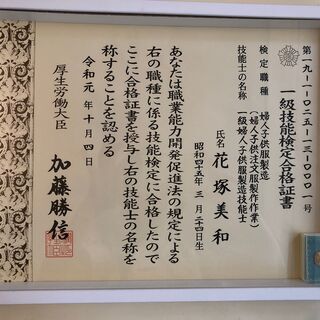 第一九-一-〇二五-一三-〇〇〇一号
一級技能検定合格証書
検定職種 婦人子供服製造
(婦人子供注文服製作作業)
技能士の名称 一級婦人子供服製造技能士
氏名 花塚美和
昭和四十五年三月二十四日生
あなたは職業能力開発促進法の規定による
右の職種に係る技能検定に合格したので
ここに合格証書を授与し右の技能士の名称を
称することを認める
令和元年十月四日
厚生労働大臣 加藤勝信